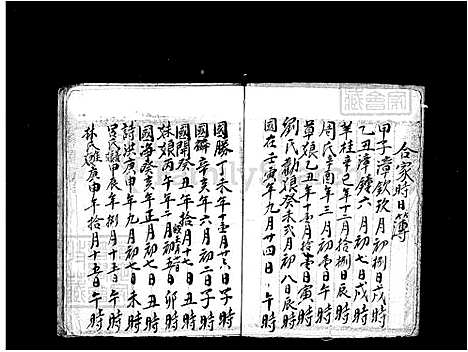 合家時日簿
甲子漳欽玖月初捌日戌時
乙丑漳鐘六月初七日戌時
羊桂辛巳年十二月拾捌日辰時
周氏辛酉年三月初壱日午時
草娘乙丑年十壱月拾壱日寅時
劉氏勸娘癸未弍月初八日辰時
國在壬寅年九月十四日午時
國勝 未年十壱月廿六日子時
國麟辛亥年六月初二日子時
國開癸丑年拾月十七日丑時
妹娘丙午年三月初 日卯時
國海癸亥年正月初七日丑時
詩洪庚申年九月初七日未時
氏 甲辰年捌月十五日 時
林氏雄庚申年拾月十五日午時